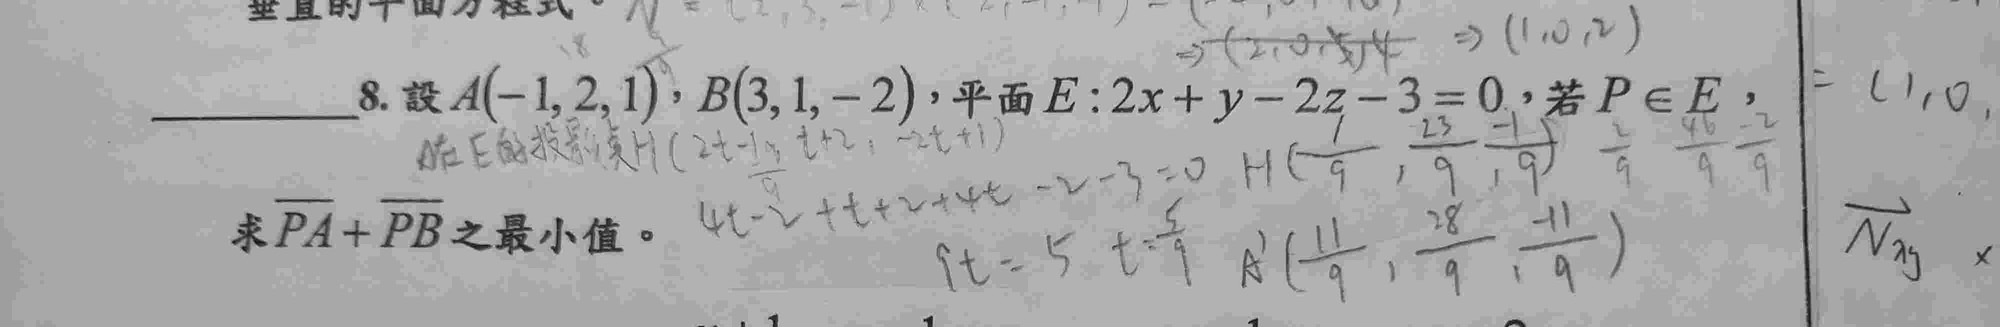 垂直的平面方程式。
⇒ (2,0,4) ⇒ (1,0,2)
8. 設 A(−1, 2, 1), B(3, 1, −2), 平面 E : 2x + y − 2z − 3 = 0, 若 P ∈ E, = (1,0,
A在E的投影點H(2t-1, t+2, -2t+1) H(1/9, 23/9, -1/9) 2/9 46/9 -2/9
4t-2+t+2+4t-2-3=0
求 PA + PB 之最小值。
9t=5 t=5/9 A'(11/9, 28/9, -11/9)
N xy ×